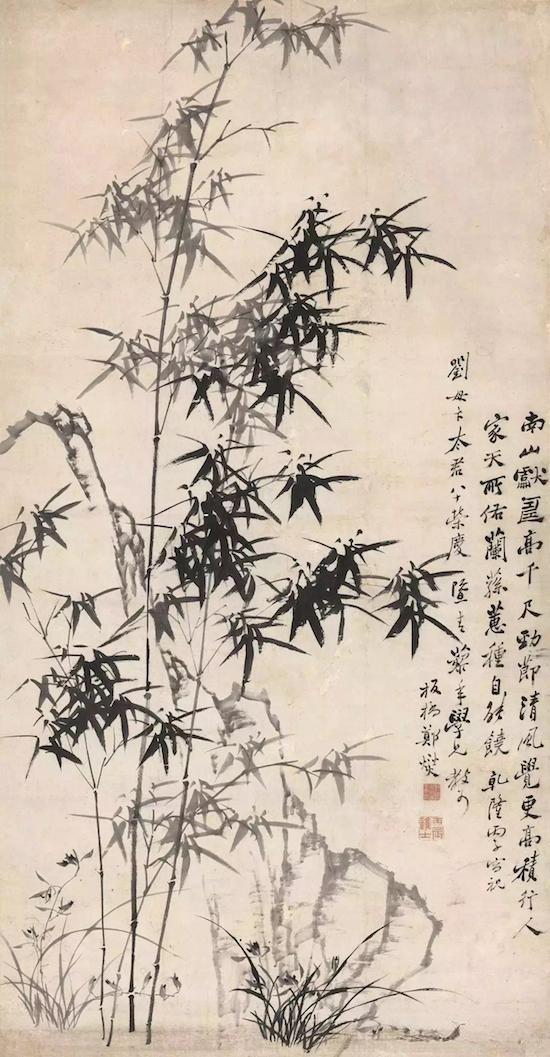 南山獻壽高千尺勁節清風覺更高積行人
家天所佑蘭蓀蕙種自能饒 乾隆丙子寫祝
劉母卞太君八十榮慶 藜年學兄教
板橋鄭燮
丙辰進士